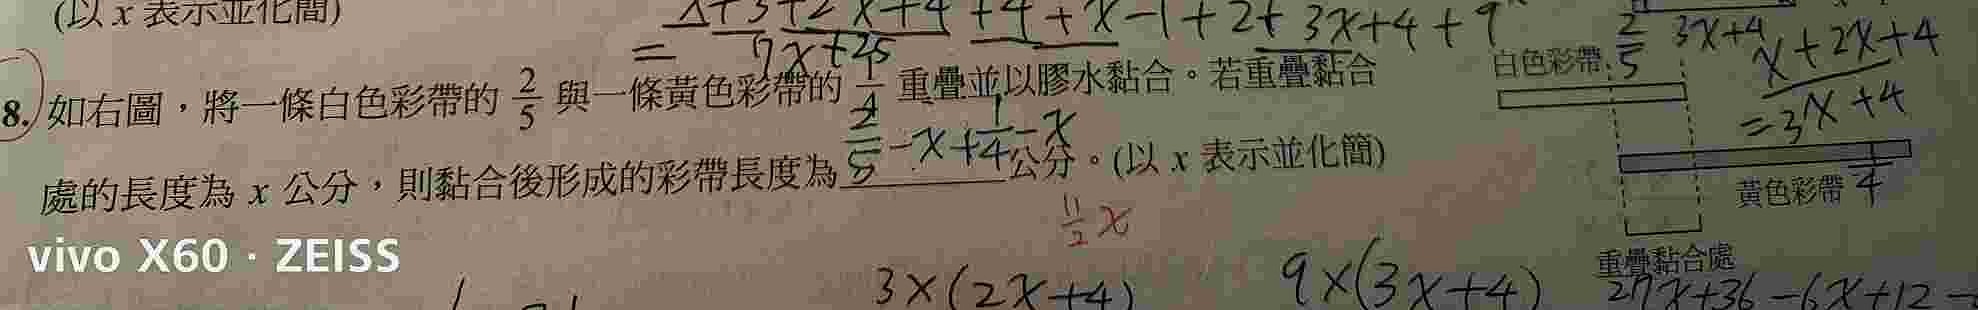 (以 x 表示並化簡)
x+3+2x+4+4+x-1+2+3x+4+9
= 7x+25
8. 如右圖，將一條白色彩帶的 2/5 與一條黃色彩帶的 1/4 重疊並以膠水黏合。若重疊黏合
2/5-x+1/4-x
處的長度為 x 公分，則黏合後形成的彩帶長度為 公分。(以 x 表示並化簡)
11/2 x
白色彩帶 2/5
3x+4
x+2x+4
=3x+4
黃色彩帶 1/4
重疊黏合處
vivo X60 · ZEISS
3×(2x+4) 9×(3x+4) 27x+36-6x+12-